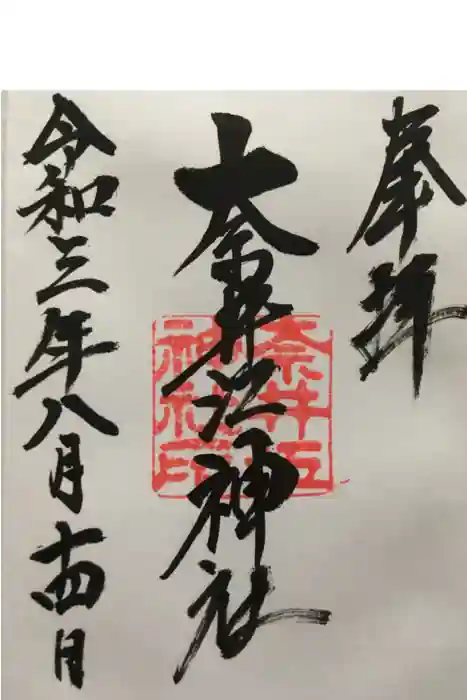 奉拝
奈井江神社
奈井江神社印
令和三年八月十四日